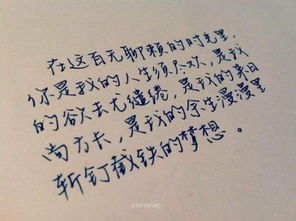 在这百无聊赖的时光里，
你是我的人生须尽欢，是我
的欲去无缱绻，是我的来日
尚方长，是我的余生漫漫里
斩钉截铁的梦想。